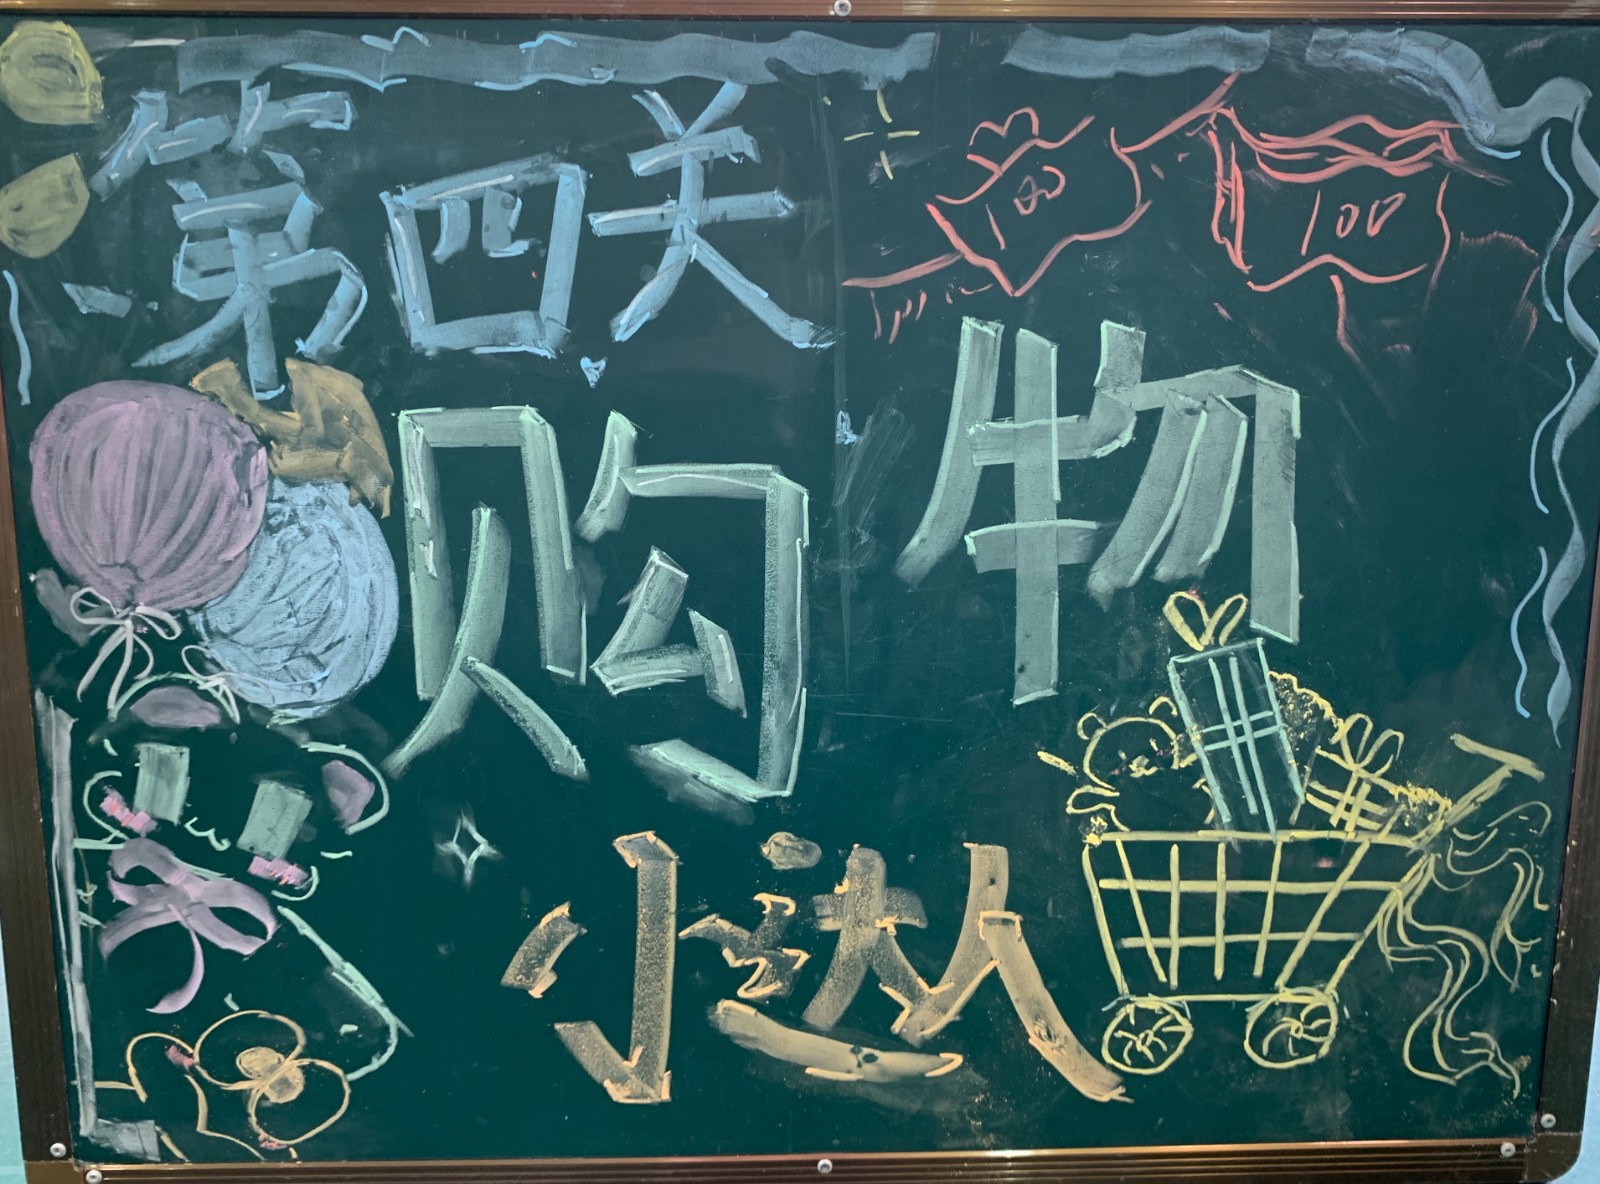 第四关
100 100
购物
小达人